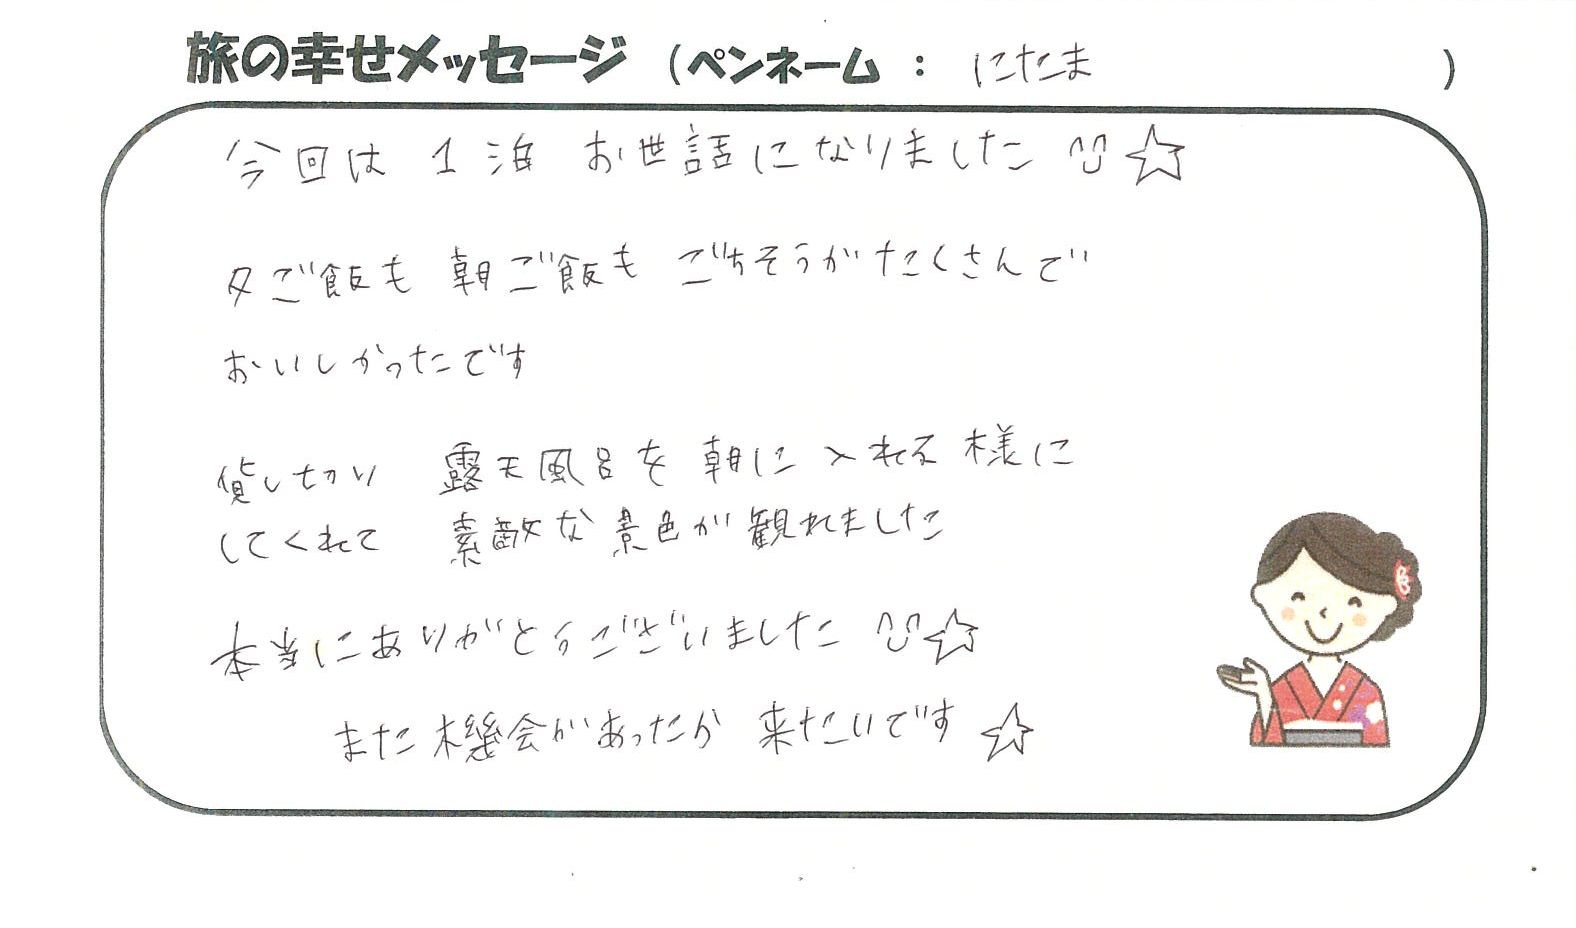 旅の幸せメッセージ (ペンネーム : にたま )
今回は 1泊 お世話になりました ☆
夕ご飯も 朝ご飯も ごちそうがたくさんで
おいしかったです
貸し切り 露天風呂を 朝に 入れる 様に
してくれて 素敵な 景色が 観れました
本当にありがとうございました ☆
また 機会があったら 来たいです ☆